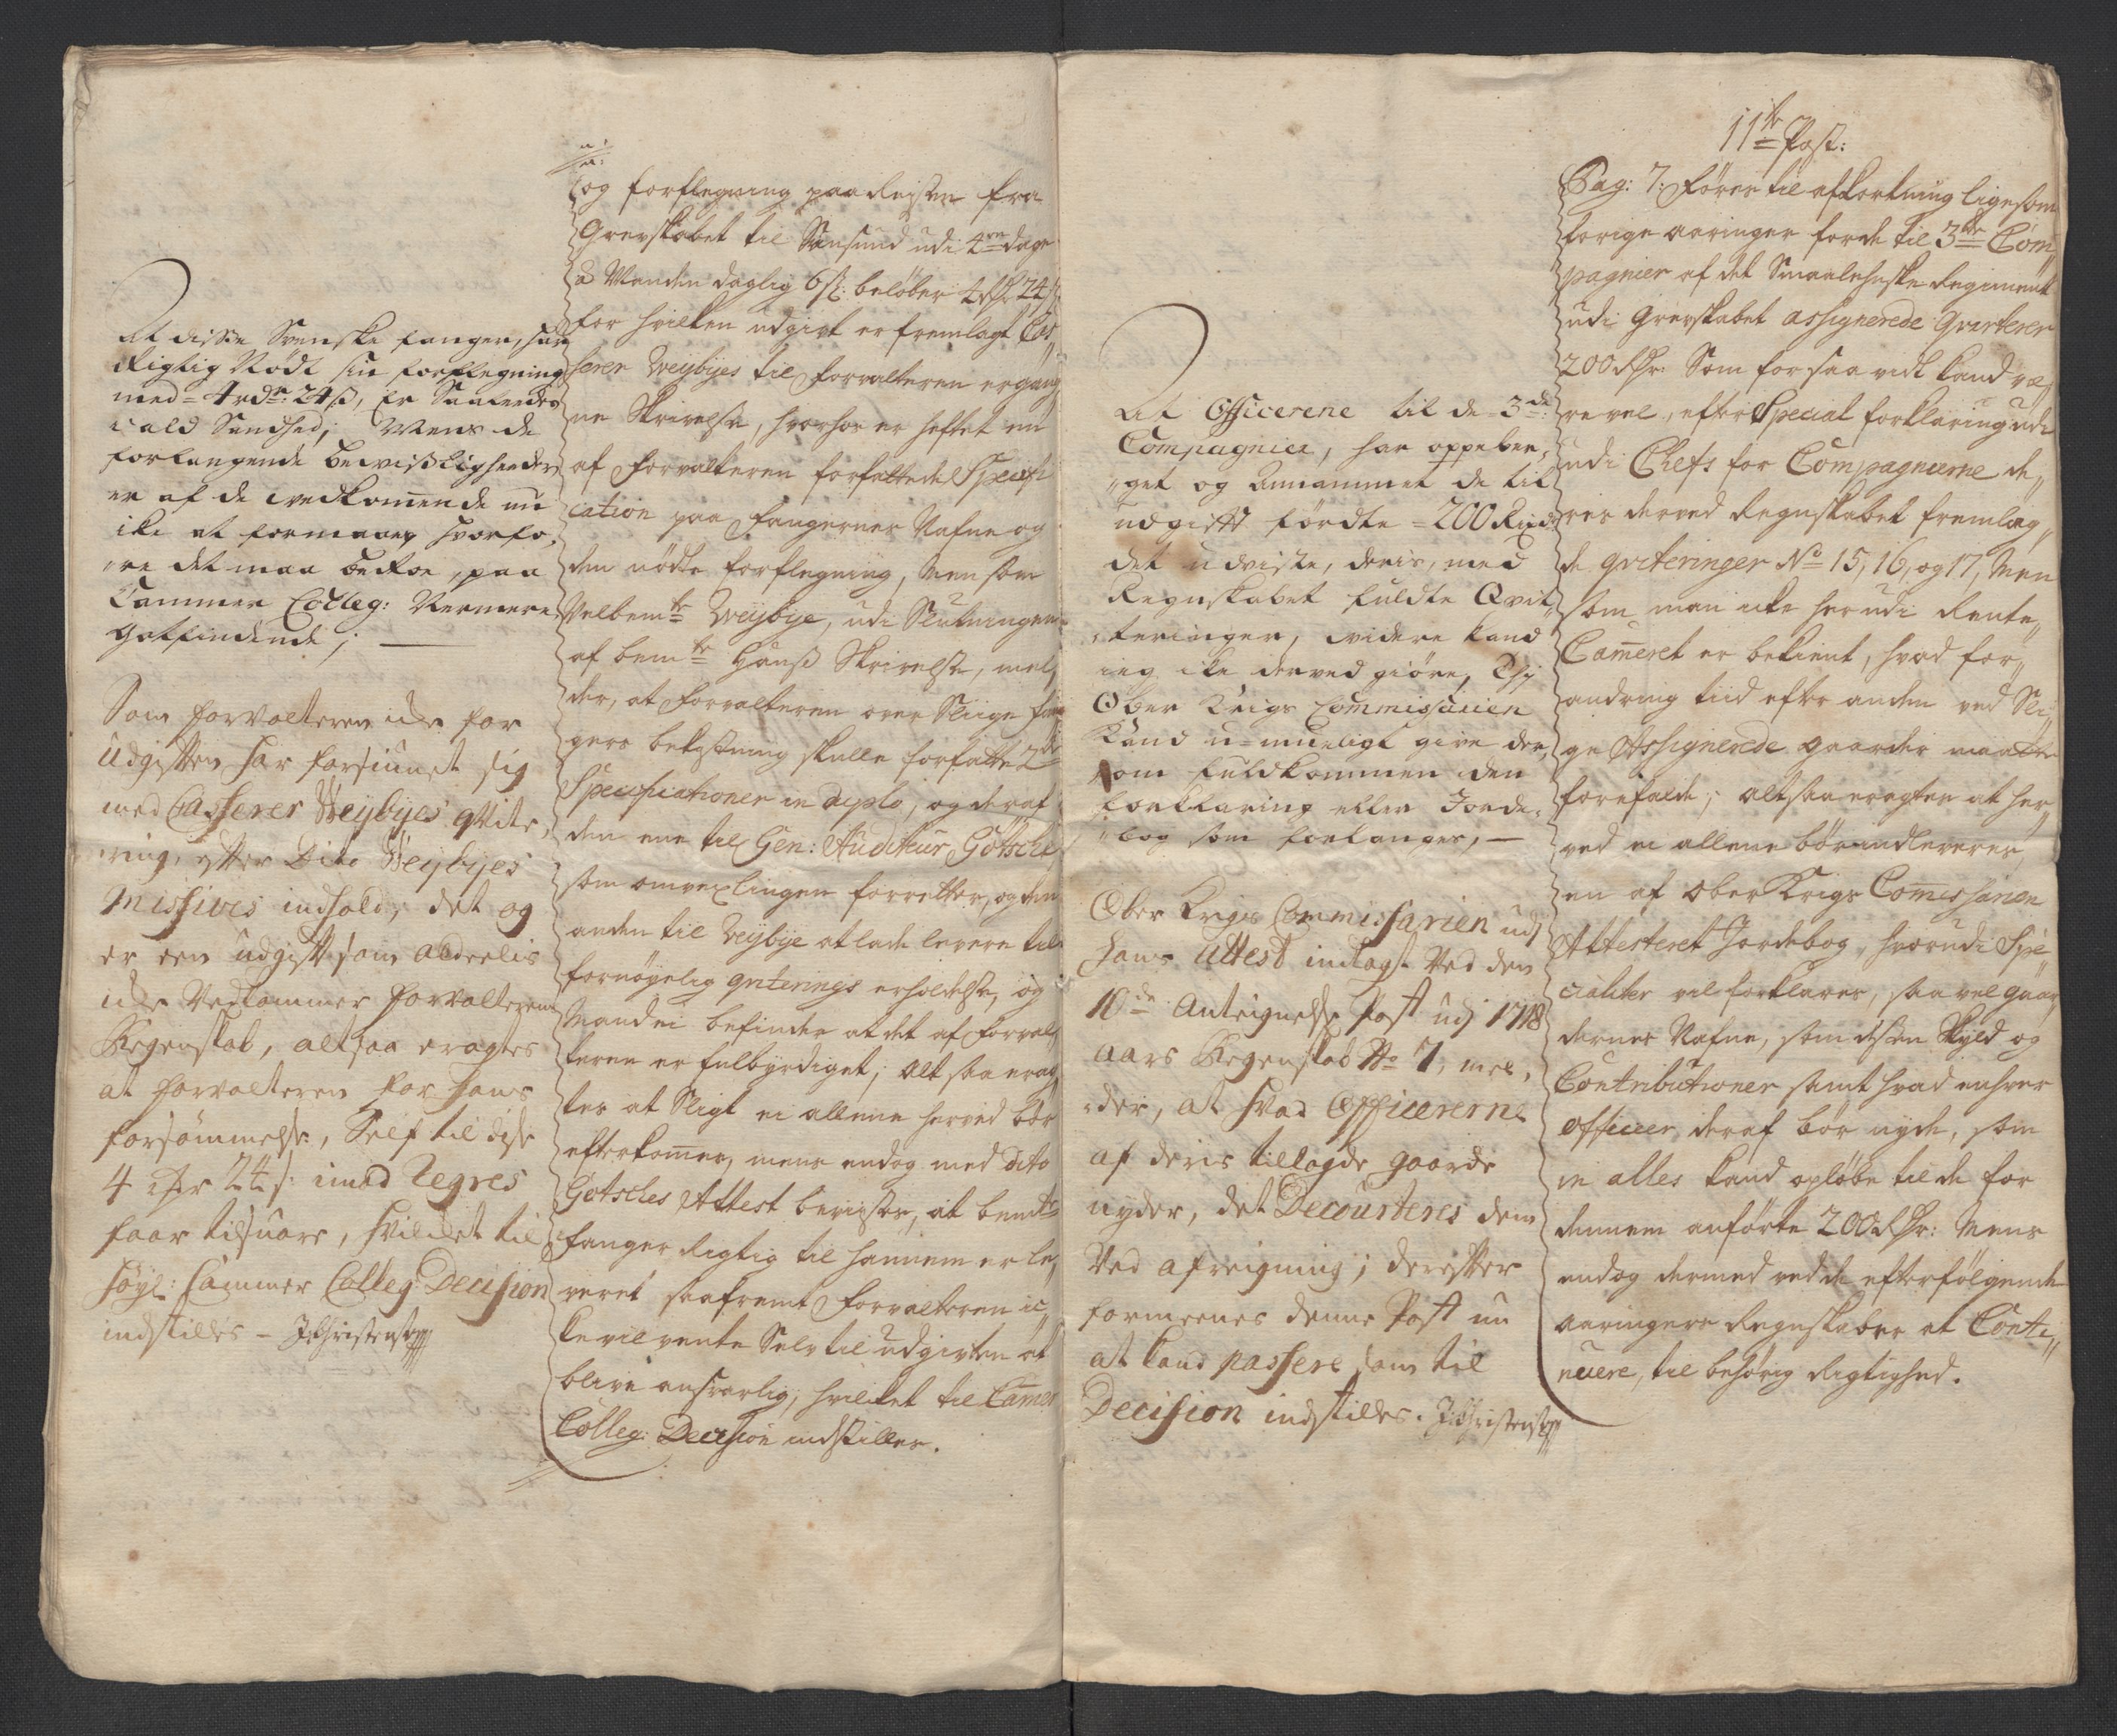 At disse Svenske fanger, har
Rigtig Nødt sin forflegning
med 4 rdr: 24 ß, er Saaledes
i ald Sandhed; Mens de
forlangende bewisligheeder
er af de wedkomende nu
iche at formaae, hvorfo„
„re det maa beroe, paa
Cammer Colleg: Nermere
Gotfindende; —
Som forvalteren iche for
Udgiften har forsiunet sig
med Casserer Weybyes qvite„
„ring, efter Dito Weybyes
Missives indhold, det og
er een udgift som aldeelis
iche Vedkommer forvalterens
Regenskab, altsaa eragtes
at forvalteren for hans
forsømmelse, Self til disse
4 rdr 24 ß: imod Regres
faar tilsvare, hvilchet til
høyl: Cammer Colleg: Decision
indstilles – J:Christens
og forflegning paa Reisen fra
Grevskabet til Sansund udi 4re dage
â Manden daglig 6 ß: beløber 4 Rdr 24 ß
for hvilken udgivt er fremlagt Cas„
serer Weybyes til forvalteren ergang„
ne Skrivelse, hvorhos er heftet en
af Forvalteren forfattede Specifi
cation paa fangernes Nafne og
den nødte forflegning, Men som
Velbemte Weybye, udi Slutningen
af bemte Hans Skrivelse, mel„
der, at Forvalteren over Sliige fan
gers bekostning skulle forfatte 2de
Specificationer in duplo, og deraf
den ene til Gen: Auditeur Götsche
som omvexlingen forretter, og den
anden til Weybye at lade levere til
fornøyelig qviterings erholdelse, og
Mand ei befinder at det af Forval„
teren er fulbyrdiget; Alt saa erag„
tes at Sligt ei allene herved bør
efterkomes, mens endog med dito
Götsches Attest bevises, at bemte
fanger Rigtig til hannem er le„
veret saafremt Forvalteren ic„
ke vil vente Selv til udgivten at
blive ansvarlig, hvilket til Camer
Colleg: Decision indstilles.
At Officerene til de 3de
Compagnier, har oppebor„
„get og Annammet de til
udgift førdte 200 Rixd
det udviste, deris, med
Regnskabet fuldte Qvit„
„teringer, videre kand
ieg iche derved giøre, Thj
Ober Krigs Commissarien
Kand u-mueligt give der„
som fuldkommen den
forklaring eller Jorde„
„bog som forlanges, —
Ober Krigs Commissarien udj
hans Attest indlagt Ved den
10de Antegnelse Post udj 1718
aars Regenskab No 7, mel„
„der, at hvad Officererne
af deris tillagde gaarde
nyder, det Decourteres dem
Ved afreigning; derefter
formeenes denne Post nu
at kand passere som til
Decision indstilles. J:Christens
11te Post:
Pag: 7: Føres til afkortning ligesom
forige aaringer for de til 3de Com„
pagnier af det Smaalehnske Regiment
udi Grevskabet assignerede Qvarterer
200 Rdr: Som for saa vidt kand væ„
re vel, efter Special forklaring udi
udi Chefs for Compagnierne de„
res derved Regnskabet fremlag„
de qviteringer No 15, 16, og 17, Men
som man icke her udi Rente„
Cameret er bekient, hvad for„
andring tiid efter anden ved Sli„
ge Assignerede gaarder maatte
forefalde; altsaa eragtes at her
ved ei allene bør indleveres
en af Ober Krigs Comissarien
Attesteret Jordebog, hvorudi Spe„
cialiter vel forklares, saa vel gaar„
dernes Nafne, som dessen Skyld og
Contributioner samt hvad enhver
Officer deraf bør nyde, som
in alles kand opløbe til de for
dennem anførte 200 Rdr: Mens
endog dermed ved de efterfølgende
aaringers Regnskaber at Conti„
nuere, til behørig Rigtighed.